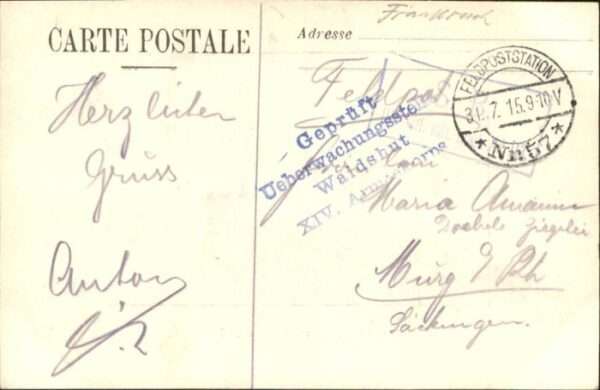 CARTE POSTALE
Herzlichen
Gruss
Anton
Frankreich
Adresse
Feldpost
FELDPOSTSTATION
31.7.15.9-10V
* Nr. 57 *
Geprüft
Ueberwachungsstelle
Waldshut
XIV. Armeekorps
Maria Amann
Ziegelei
Murg a/Rh
Säckingen.